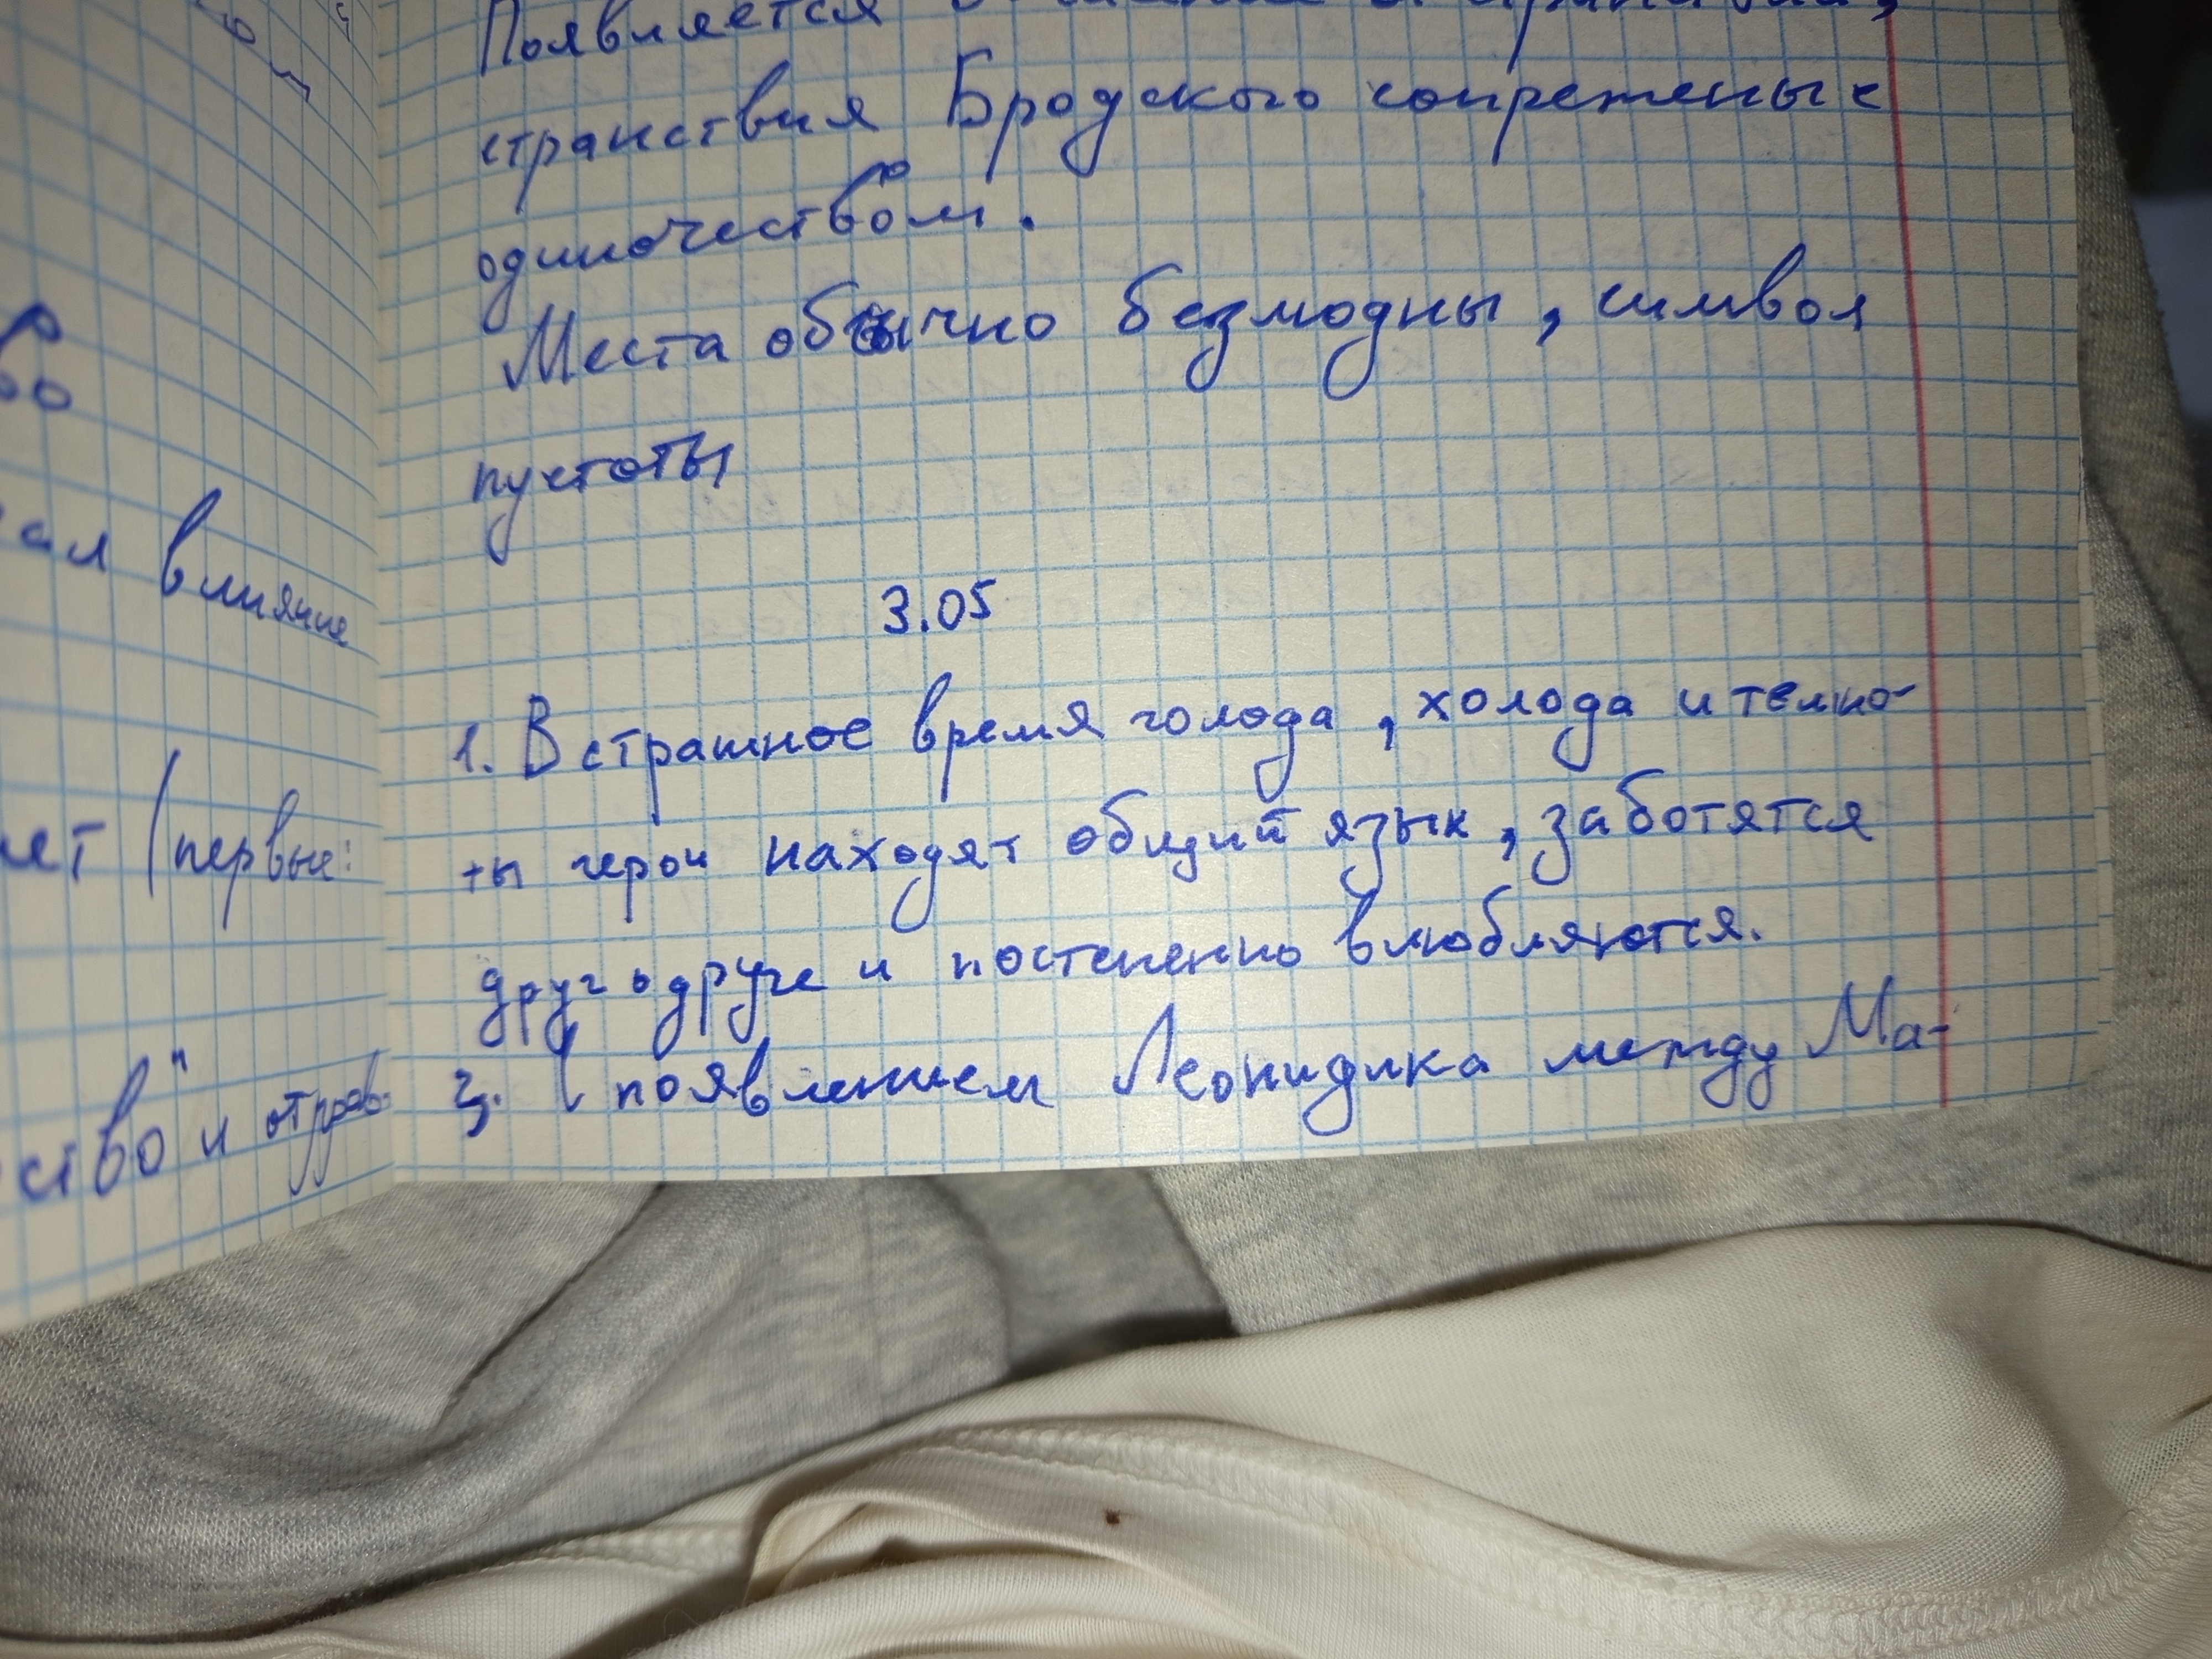 влияние
(первые:
ство" и отрав-
Появляется
странствия Бродского сопрежены с
одиночеством.
Места обычно безлюдны, символ
пустоты
3.05
1. В страшное время голода, холода и темно-
ты герои находят общий язык, заботятся
друг о друге и постепенно влюбляются.
3. С появлением Леонидика между Ма-